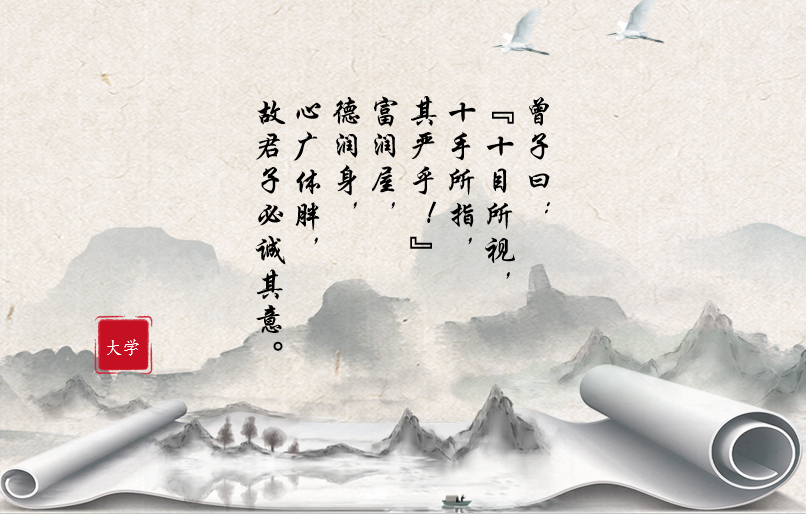 曾子曰：
『十目所视，
十手所指，
其严乎！』
富润屋，
德润身，
心广体胖，
故君子必诚其意。
大学